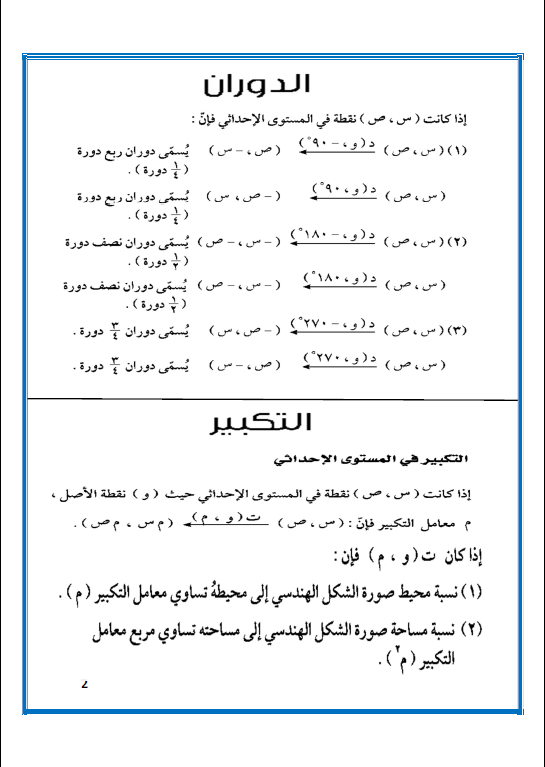 الدوران
إذا كانت ( س ، ص ) نقطة في المستوى الإحداثي فإنّ :
(١) ( س ، ص ) د ( و ، − ٩٠° ) ( ص ، − س ) يُسمّى دوران ربع دورة
( ١/٤ دورة ) .
( س ، ص ) د ( و ، ٩٠° ) ( − ص ، س ) يُسمّى دوران ربع دورة
( ١/٤ دورة ) .
(٢) ( س ، ص ) د ( و ، − ١٨٠° ) ( − س ، − ص ) يُسمّى دوران نصف دورة
( ١/٢ دورة ) .
( س ، ص ) د ( و ، ١٨٠° ) ( − س ، − ص ) يُسمّى دوران نصف دورة
( ١/٢ دورة ) .
(٣) ( س ، ص ) د ( و ، − ٢٧٠° ) ( − ص ، س ) يُسمّى دوران ٣/٤ دورة .
( س ، ص ) د ( و ، ٢٧٠° ) ( ص ، − س ) يُسمّى دوران ٣/٤ دورة .
التكبير
التكبير في المستوى الإحداثي
إذا كانت ( س ، ص ) نقطة في المستوى الإحداثي حيث ( و ) نقطة الأصل ،
م معامل التكبير فإنّ : ( س ، ص ) ت ( و ، م ) ( م س ، م ص ) .
إذا كان ت ( و ، م ) فإن :
(١) نسبة محيط صورة الشكل الهندسي إلى محيطهُ تساوي معامل التكبير ( م ) .
(٢) نسبة مساحة صورة الشكل الهندسي إلى مساحته تساوي مربع معامل
التكبير ( م٢ ) .
2